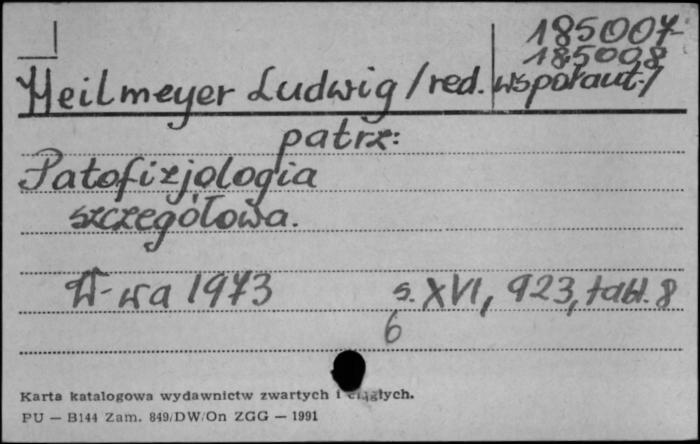 185007-
185008
Heilmeyer Ludwig /red. współaut./
patrz:
Patofizjologia
szczegółowa.
W-wa 1973 s. XVI, 923, tabl. 8
6
Karta katalogowa wydawnictw zwartych i ciągłych.
PU — B144 Zam. 849/DW/On ZGG — 1991